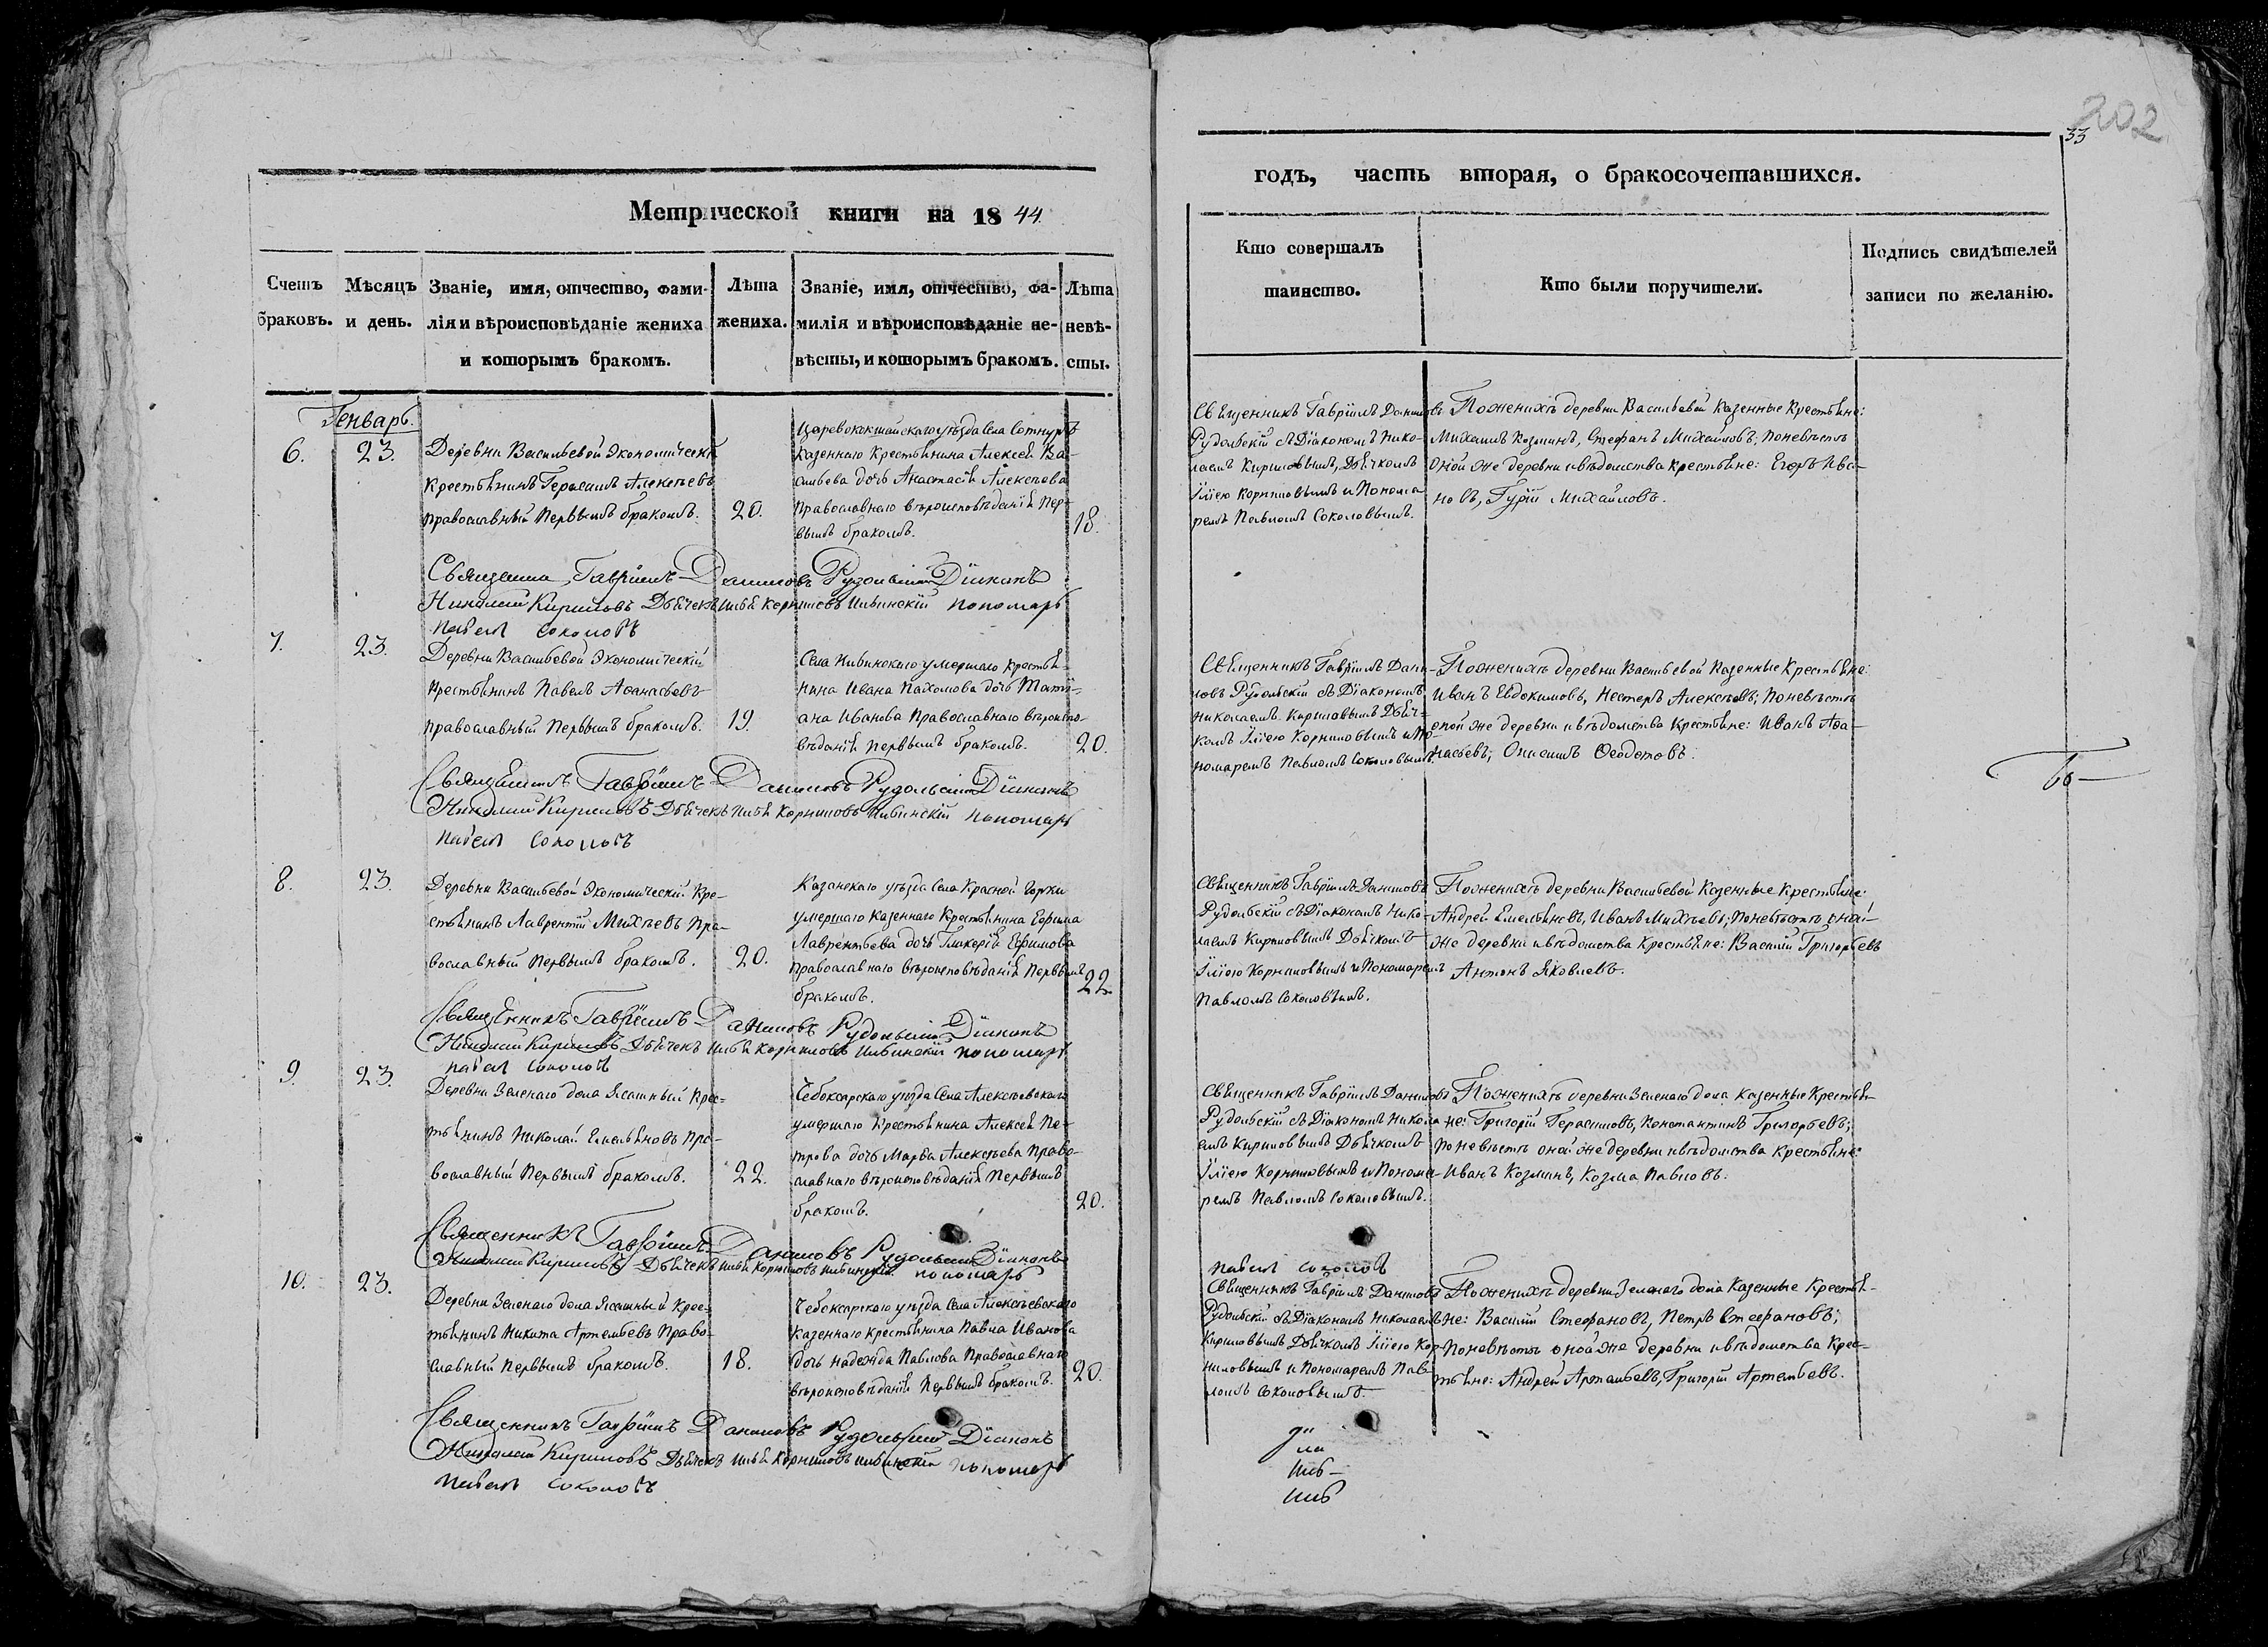 202
33
Метрической книги на 1844
годъ, часть вторая, о бракосочетавшихся.
Счетъ браковъ.
Мѣсяцъ и день.
Званіе, имя, отчество, фами-
лія и вѣроисповѣданіе жениха
и которымъ бракомъ.
Лѣта
жениха.
Званіе, имя, отчество, фа-
милія и вѣроисповѣданіе не-
вѣсты, и которымъ бракомъ.
Лѣта
невѣ-
сты.
Кто совершалъ
таинство.
Кто были поручители.
Подпись свидѣтелей
записи по желанію.
Генварь.
6.
23.
Деревни Васильевой Экономическій
крестьянинъ Герасимъ Алексѣевъ
православный первымъ бракомъ.
20.
Царевококшайскаго уѣзда села Сотнуръ
казеннаго крестьянина Алексѣя Ва-
сильева дочь Анастасія Алексѣева
православнаго вѣроисповѣданія пер-
вымъ бракомъ.
18.
Священникъ Гавріилъ Даниловъ
Рудольскій съ Діакономъ Нико-
лаемъ Кириловымъ, Дьячкомъ
Іліею Корниловымъ и Понома
ремъ Павломъ Соколовымъ.
По женихѣ деревни Васильевой казенные крестьяне:
Михаилъ Козминъ, Стефанъ Михайловъ; по невѣстѣ
оной же деревни и вѣдомства крестьяне: Егоръ Ива-
новъ, Гурій Михайловъ.
Гавріилъ Даниловъ Рудольскій Діаконъ
Николай Кириловъ Дьячекъ Илья Корниловъ Ильинскій пономарь
Павелъ Соколовъ
7.
23.
Деревни Васильевой Экономическій
крестьянинъ Павелъ Аѳанасьевъ
православный первымъ бракомъ.
19.
Села Ильинскаго умершаго крестья-
нина Ивана Пахомова дочь Тати-
ана Иванова православнаго вѣроиспо-
вѣданія первымъ бракомъ.
20.
Священникъ Гавріилъ Дани-
ловъ Рудольскій съ Діакономъ
Николаемъ Кириловымъ Дьяч-
комъ Іліею Корниловымъ и По-
номаремъ Павломъ Соколовымъ.
По женихѣ деревни Васильевой казенные крестьяне:
Иванъ Евдокимовъ, Нестеръ Алексѣевъ; по невѣстѣ
оной же деревни и вѣдомства крестьяне: Иванъ Аѳа-
насьевъ, Онисимъ Ѳеодотовъ.
Священникъ Гавріилъ Даниловъ Рудольскій Діаконъ
Николай Кириловъ Дьячекъ Илья Корниловъ Ильинскій пономарь
Павелъ Соколовъ
8.
23.
Деревни Васильевой Экономическій Кре-
стьянинъ Лаврентій Михѣевъ пра-
вославный первымъ бракомъ.
20.
Казанскаго уѣзда села Красной Горки
умершаго казеннаго крестьянина Ефима
Лаврентьева дочь Гликерія Ефимова
православнаго вѣроисповѣданія первымъ
бракомъ.
22.
Священникъ Гавріилъ Даниловъ
Рудольскій съ Діакономъ Нико-
лаемъ Кириловымъ Дьячкомъ
Іліею Корниловымъ и Пономаремъ
Павломъ Соколовымъ.
По женихѣ деревни Васильевой казенные крестьяне:
Андрей Емельяновъ, Иванъ Михѣевъ; по невѣстѣ оной
же деревни и вѣдомства крестьяне: Василій Григорьевъ
Антонъ Яковлевъ.
Священникъ Гавріилъ Даниловъ Рудольскій Діаконъ
Николай Кириловъ Дьячекъ Илья Корниловъ Ильинскій пономарь
Павелъ Соколовъ
9.
23.
Деревни Зеленаго дола Ясашный Крес-
тьянинъ Николай Емельяновъ пра-
вославный первымъ бракомъ.
22.
Чебоксарскаго уѣзда села Алексѣевскаго
умершаго крестьянина Алексѣя Пе-
трова дочь Марѳа Алексѣева право-
славнаго вѣроисповѣданія первымъ
бракомъ.
20.
Священникъ Гавріилъ Даниловъ
Рудольскій съ Діакономъ Никола-
емъ Кириловымъ Дьячкомъ
Іліею Корниловымъ и Понома-
ремъ Павломъ Соколовымъ.
По женихѣ деревни Зеленаго дола казенные крестья-
не: Григорій Герасимовъ, Константинъ Григорьевъ;
по невѣстѣ оной же деревни и вѣдомства крестьяне:
Иванъ Козминъ, Козма Павловъ.
Священникъ Гавріилъ Даниловъ Рудольскій Діаконъ
Николай Кириловъ Дьячекъ Илья Корниловъ Ильинскій пономарь
Павелъ Соколовъ
10.
23.
Деревни Зеленаго дола Ясашный Крес-
тьянинъ Никита Артемьевъ право-
славный первымъ бракомъ.
18.
Чебоксарскаго уѣзда села Алексѣевскаго
казеннаго крестьянина Павла Иванова
дочь Надежда Павлова православнаго
вѣроисповѣданія первымъ бракомъ.
20.
Священникъ Гавріилъ Даниловъ
Рудольскій съ Діакономъ Николаемъ
Кириловымъ Дьячкомъ Іліею Кор-
ниловымъ и Пономаремъ Пав-
ломъ Соколовымъ.
По женихѣ деревни Зеленаго дола казенные крестья-
не: Василій Стефановъ, Петръ Стефановъ;
по невѣстѣ оной же деревни и вѣдомства крес-
тьяне: Андрей Артемьевъ, Григорій Артемьевъ.
Священникъ Гавріилъ Даниловъ Рудольскій Діаконъ
Николай Кириловъ Дьячекъ Илья Корниловъ Ильинскій пономарь
Павелъ Соколовъ